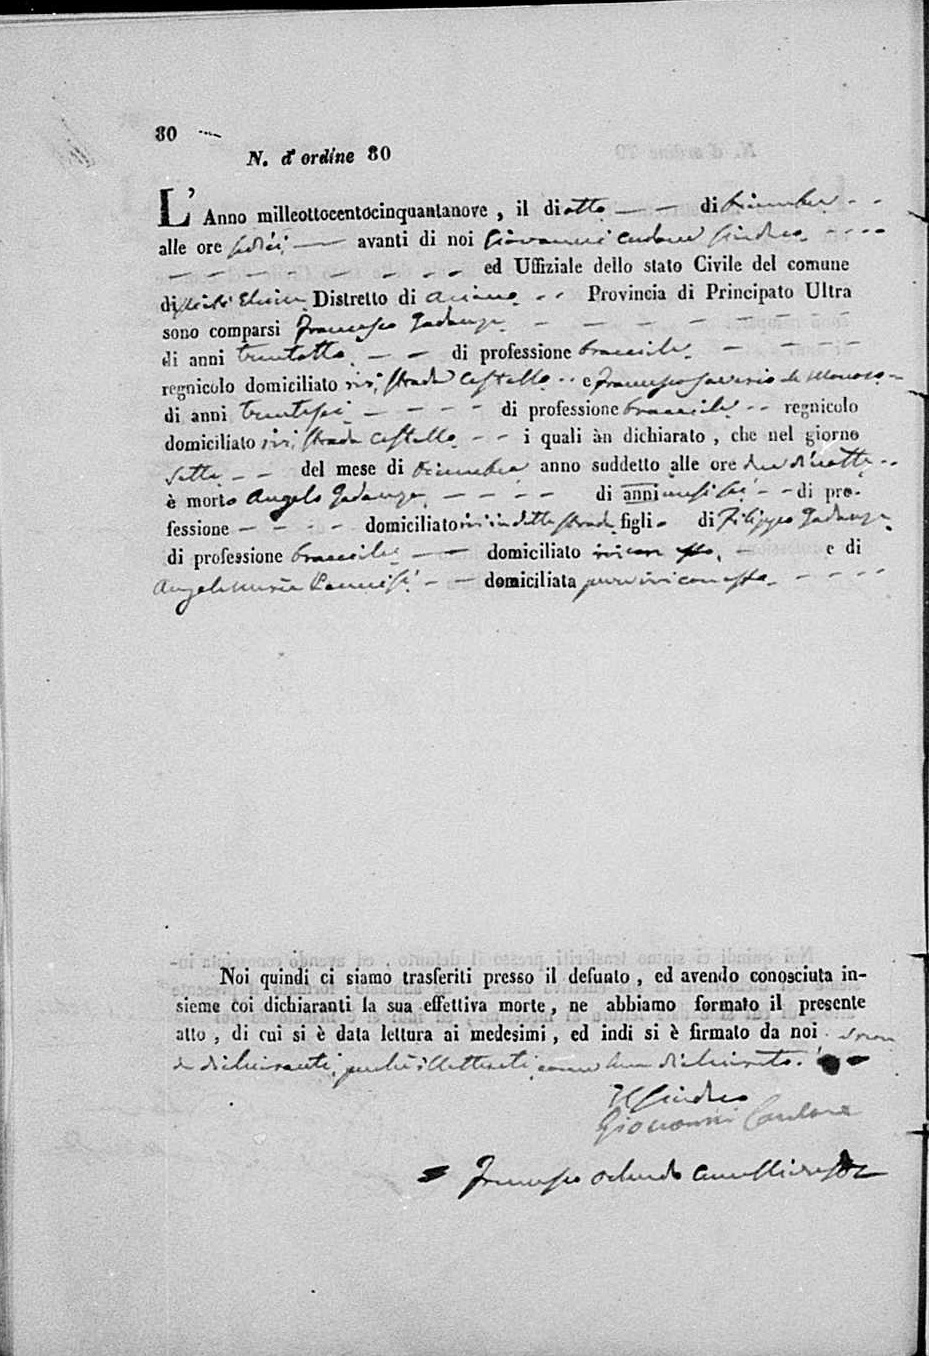 80
N. d'ordine 80
L' Anno milleottocentocinquantanove, il dì otto — — di Dicembre - -
alle ore sedici — avanti di noi Giovanni Cardone Sindaco - - - -
— — — — — — — — ed Uffiziale dello stato Civile del comune
di Distretto di Ariano - - Provincia di Principato Ultra
sono comparsi Francesco — — — — — —
di anni trentotto — — di professione bracciale — — — —
regnicolo domiciliato ivi, strada Castello - - e Francesco Saverio de
di anni trentasei — - - - di professione bracciale - - regnicolo
domiciliato ivi strada Castello - - i quali àn dichiarato, che nel giorno
sette — — del mese di Dicembre anno suddetto alle ore
è morto Angelo — - - - di anni mesi sei - - di pro-
fessione — - - - domiciliato ivi in detta strada figlio di Filippo
di professione bracciale — — domiciliato ivi — e di
Angelamaria — — domiciliata pure ivi con essa - - - -
Noi quindi ci siamo trasferiti presso il defunto, ed avendo conosciuta in-
sieme coi dichiaranti la sua effettiva morte, ne abbiamo formato il presente
atto, di cui si è data lettura ai medesimi, ed indi si è firmato da noi
dichiaranti, perché illetterati, come han dichiarato.
Il Sindaco
Giovanni Cardone
Francesco Orlando Cancelliere